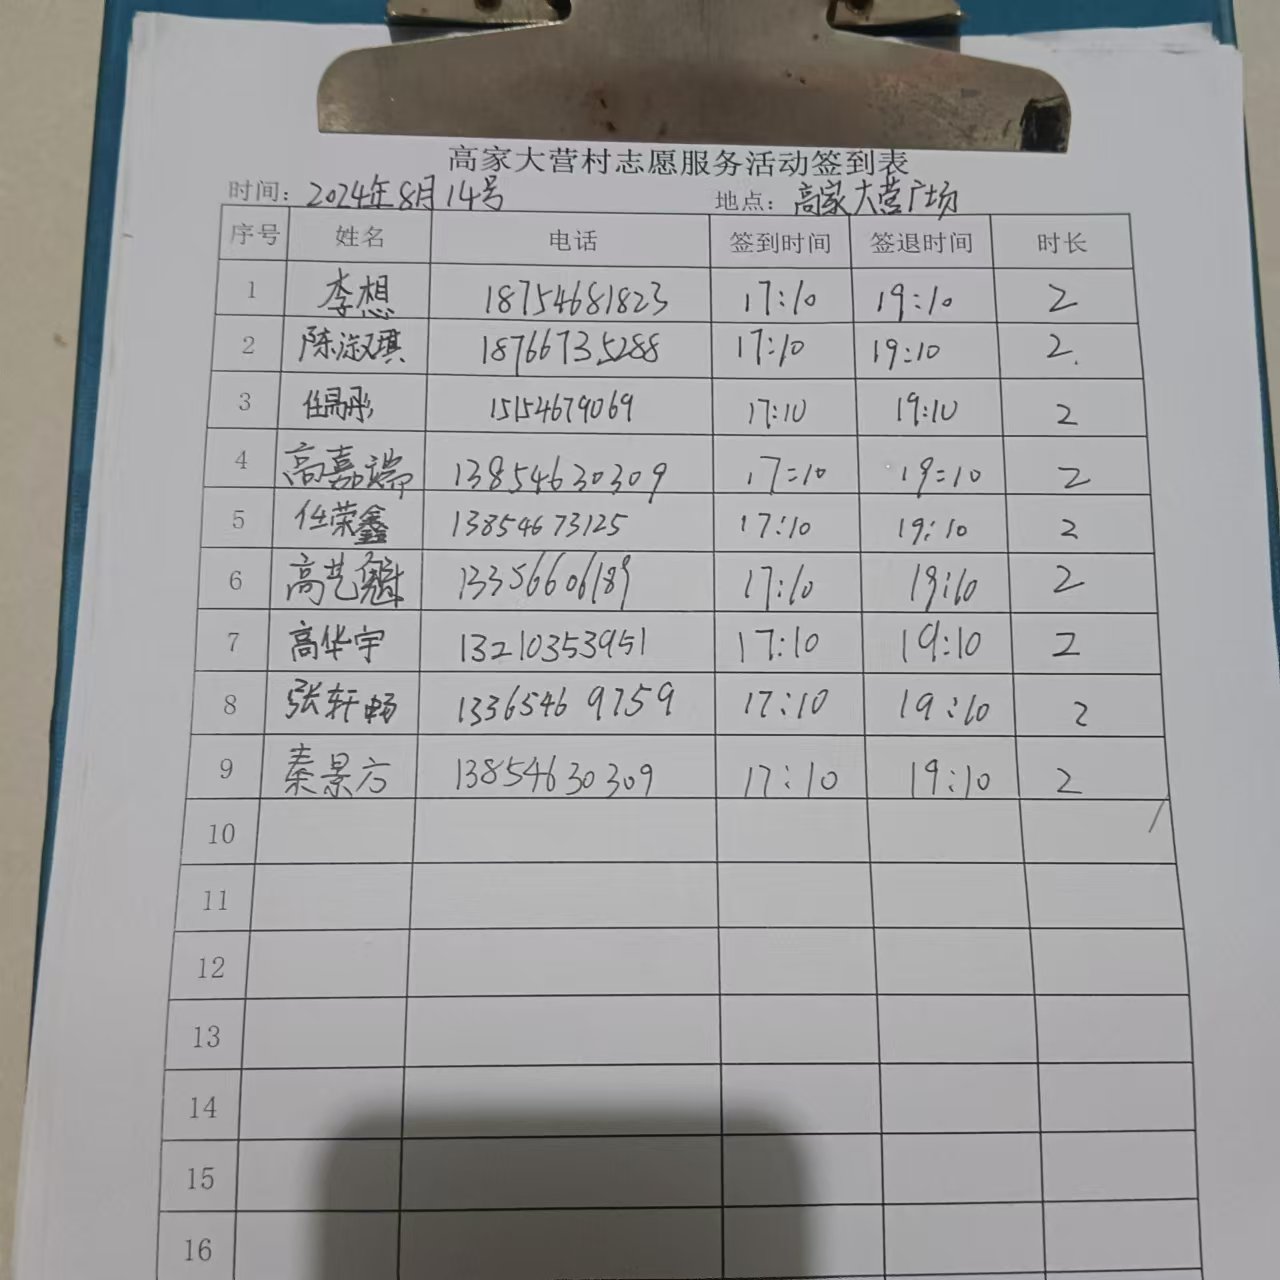 高家大营村志愿服务活动签到表
时间: 2024年8月14号 地点: 高家大营广场
序号 姓名 电话 签到时间 签退时间 时长
1 李想 18754681823 17:10 19:10 2
2 陈淑琪 18766735288 17:10 19:10 2.
3 任易彤 15154679069 17:10 19:10 2
4 高嘉端 13854630309 17:10 19:10 2
5 任荣鑫 13854673125 17:10 19:10 2
6 高艺魁 13356606189 17:10 19:10 2
7 高华宇 13210353951 17:10 19:10 2
8 张轩畅 13365469759 17:10 19:10 2
9 秦景方 13854630309 17:10 19:10 2
10
11
12
13
14
15
16